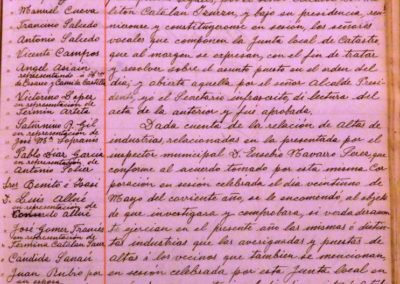 Manuel Cueva
Francisco Salcedo
Antonio Salcedo
Vicente Campos
Angel Asiain
representando á
de Orasur y Camilo Castillo
Victorino Lopez
en representación de
Fermin Artieta
Saturnino Gil
representación de
José Mª Soprani
Pablo Diaz Garcia
en representación de
Antonio Soler
Benito é Isasi
D. Luis Alluè
en representación de
Conrrado Alluè
José Gomez Francés
en representación de
Fermina Catalan
Candido Sanau
Juan Rubio por
su esposa
Catalan y bajo su presidencia, reu-
nieronse y constituyeronse en sesion, los señores
vocales que componen la Junta local de Catastro
que al margen se expresan, con el fin de tratar
y resolver sobre el asunto puesto en el orden del
dia; y abierta aquella por el señor Alcalde Presi-
dente, yo el Secretario infrascrito, di lectura del
acta de la anterior y fue aprobada.
Dada cuenta de la relación de altas de
industrias, relacionadas en la presentada por el
inspector municipal D. Eusebio Navarro Perez, que
conforme al acuerdo tomado por esta misma Cor-
poración en sesion celebrada el dia veintiuno de
Mayo del corriente año, se le encomendó, al objeto
de que investigara y comprobara, si verdaderamen-
te ejercian en el presente año las mismas ó distin-
tas industrias que las averiguadas y puestas de
altas á los vecinos que tambien se mencionan,
en sesión celebrada por esta Junta local en